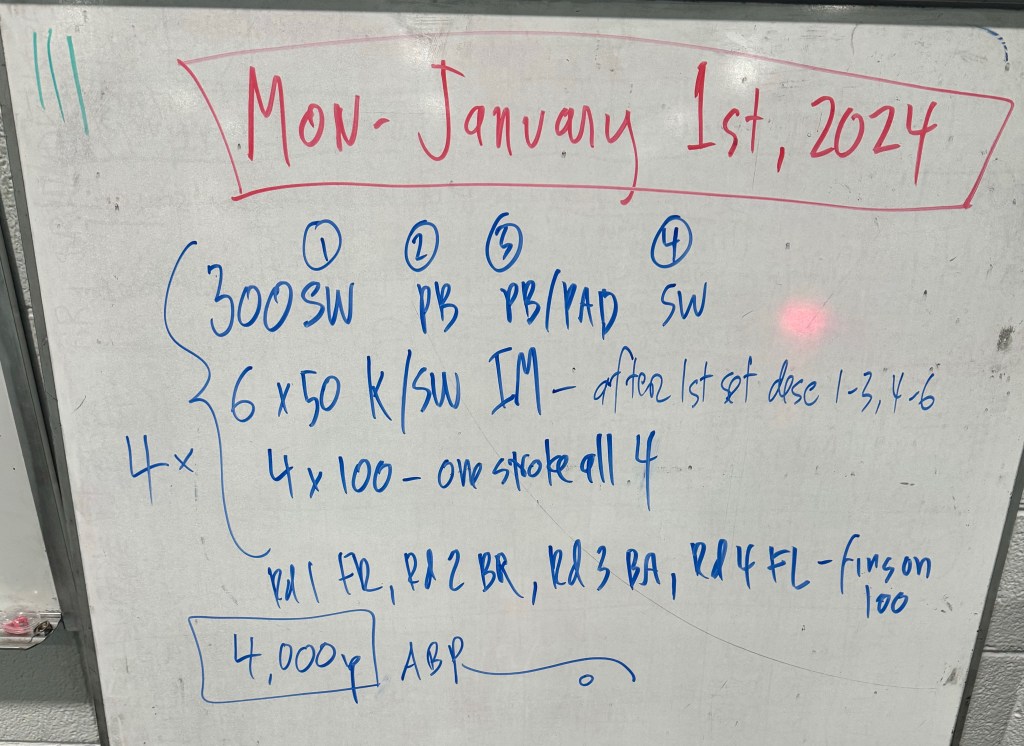 Mon- January 1st, 2024
① ② ③ ④
300 SW PB PB/PAD SW
6 x 50 K/SW IM - after 1st set desc 1-3, 4-6
4 x
4 x 100 - one stroke all 4
Rd 1 FR, Rd 2 BR, Rd 3 BA, Rd 4 FL - fins on
100
4,000y ABP